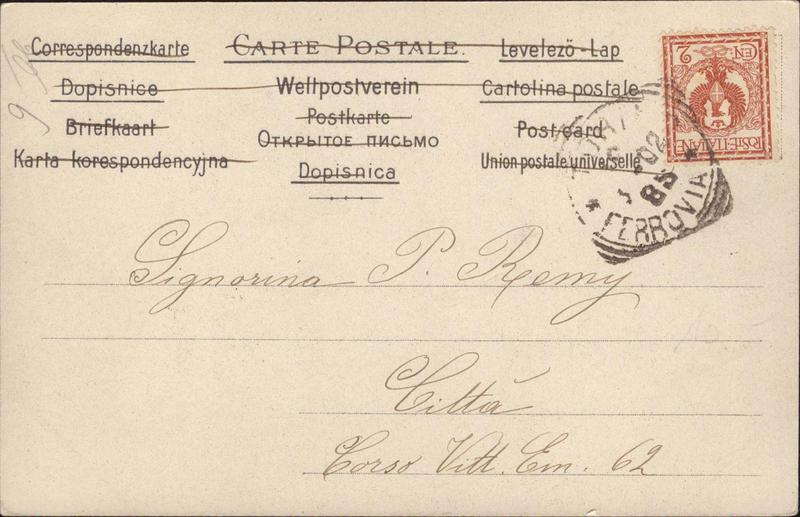 Correspondenzkarte
CARTE POSTALE.
Levelező-Lap
Dopisnice
Weltpostverein
Cartolina postale
Briefkaart
Postkarte
Post card
Karta korespondencyjna
Открытое письмо
Union postale universelle
Dopisnica
CEN. 2
POSTE·ITALIANE
02
85
* FERROVIA *
Signorina P. Remy
Città
Corso Vitt. Em. 62